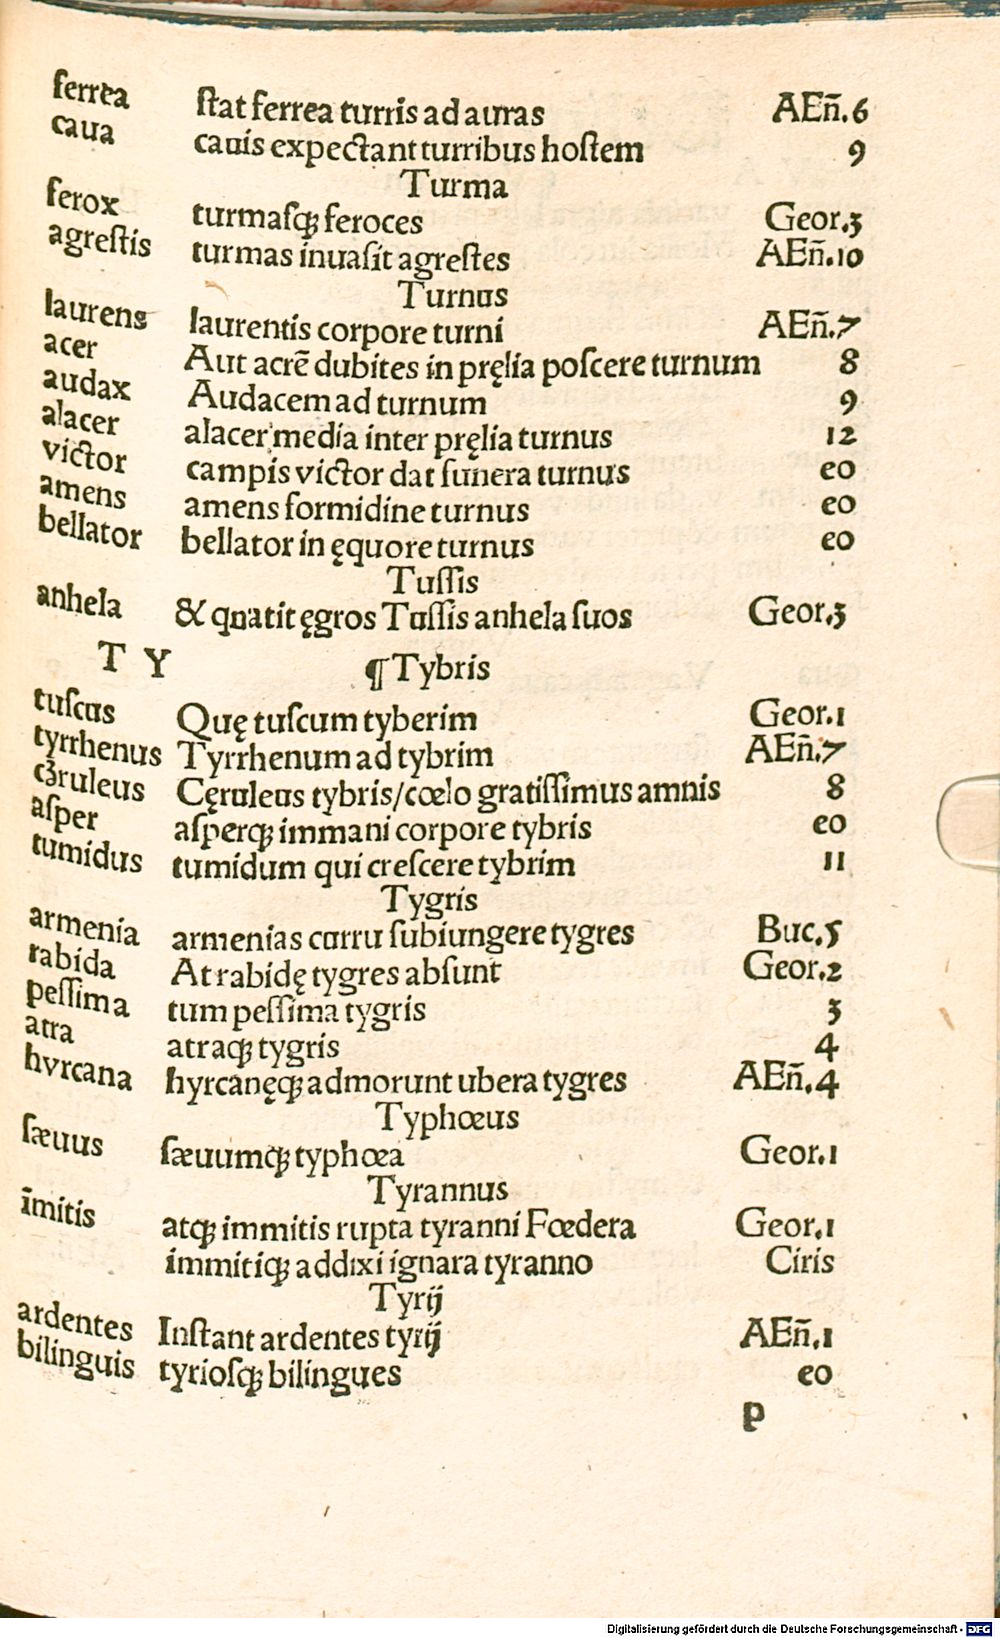 ferrea ſtat ferrea turris ad auras AEn̄.6
caua cauis expectant turribus hoſtem 9
Turma
ferox turmaſqꝫ feroces Geor.3
agreſtis turmas inuaſit agreſtes AEn̄.10
Turnus
laurens laurentis corpore turni AEn̄.7
acer Aut acrē dubites in pręlia poſcere turnum 8
audax Audacem ad turnum 9
alacer alacer media inter pręlia turnus 12
victor campis victor dat funera turnus eo
amens amens formidine turnus eo
bellator bellator in ęquore turnus eo
Tuſſis
anhela & quatit ęgros Tuſſis anhela ſuos Geor.3
T Y ¶ Tybris
tuſcus Quę tuſcum tyberim Geor.1
tyrrhenus Tyrrhenum ad tybrim AEn̄.7
cęruleus Cęruleus tybris/cœlo gratiſſimus amnis 8
aſper aſperqꝫ immani corpore tybris eo
tumidus tumidum qui creſcere tybrim 11
Tygris
armenia armenias curru ſubiungere tygres Buc.5
rabida At rabidę tygres abſunt Geor.2
peſſima tum peſſima tygris 3
atra atraqꝫ tygris 4
hyrcana hyrcanęqꝫ admorunt ubera tygres AEn̄.4
Typhœus
ſæuus ſæuumqꝫ typhœa Geor.1
Tyrannus
īmitis atqꝫ immitis rupta tyranni Fœdera Geor.1
immitiqꝫ addixi ignara tyranno Ciris
Tyrij
ardentes Inſtant ardentes tyrij AEn̄.1
bilinguis tyrioſqꝫ bilingues eo
p
Digitalisierung gefördert durch die Deutsche Forschungsgemeinschaft - DFG